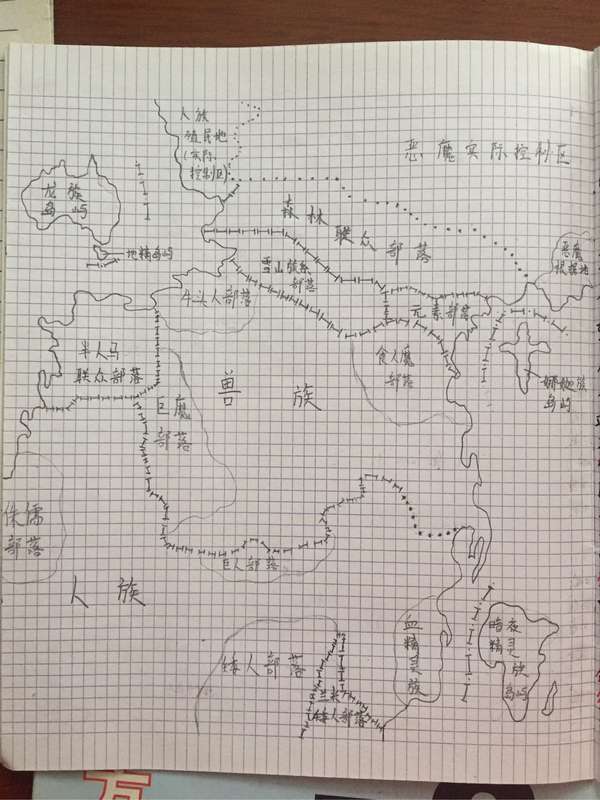 人族
殖民地
(实际
控制区)
恶魔实际控制区
龙族
岛屿
森林
联众
部落
地精岛屿
恶魔
根据地
雪山
部落
牛头人部落
元素部落
半人马
联众部落
食人魔
部落
岛屿
兽族
巨魔
部落
侏儒
部落
巨人部落
人族
血
精
灵
族
暗夜
精灵
族
岛屿
矮人部落
矮人部落